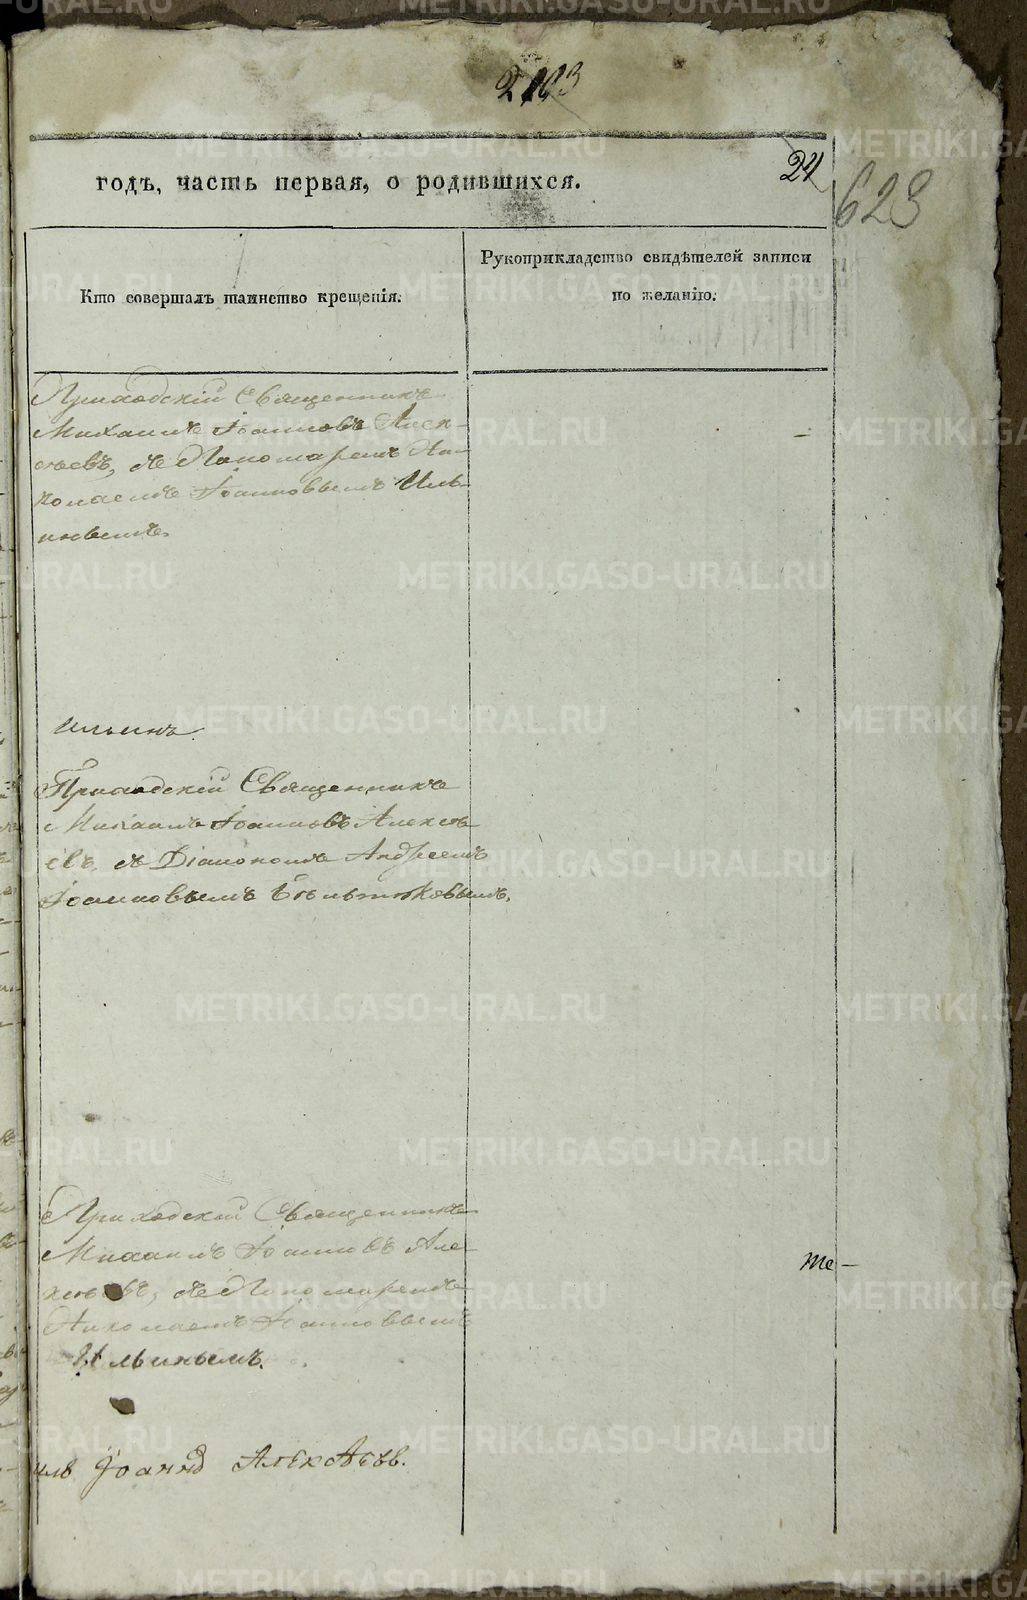 годъ, часть первая, о родившихся.
24
623
Кто совершалъ таинство крещенія.
Рукоприкладство свидѣтелей записи
по желанію.
Приходскій Священникъ
Михаилъ Іоанновъ Алек-
сѣевъ, съ Пономаремъ Ни-
колаемъ Іоанновымъ Иль-
инымъ.
Ильинъ.
Приходскій Священникъ
Михаилъ Іоанновъ Алексѣ-
евъ, съ Діакономъ Андреемъ
Іоанновымъ
Приходскій Священникъ
Михаилъ Іоанновъ Але-
ксѣевъ, съ Пономаремъ
Николаемъ Іоанновымъ
Ильинымъ.
Іоаннъ Алексѣевъ.
METRIKI.GASO-URAL.RU